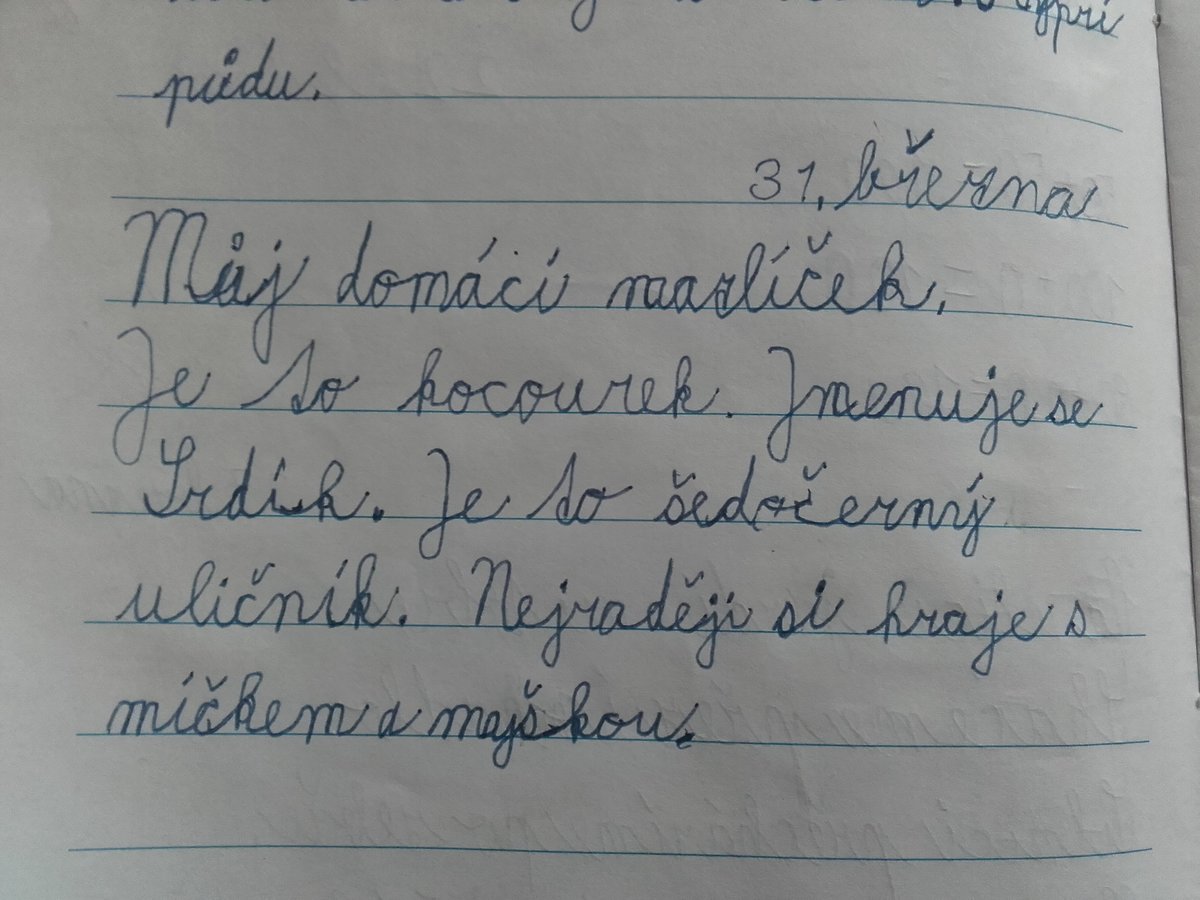 půdu.
31. března
Můj domácí mazlíček.
Je to kocourek. Jmenuje se
Srdík. Je to šedočerný
uličník. Nejraději si hraje s
míčkem a majškou.